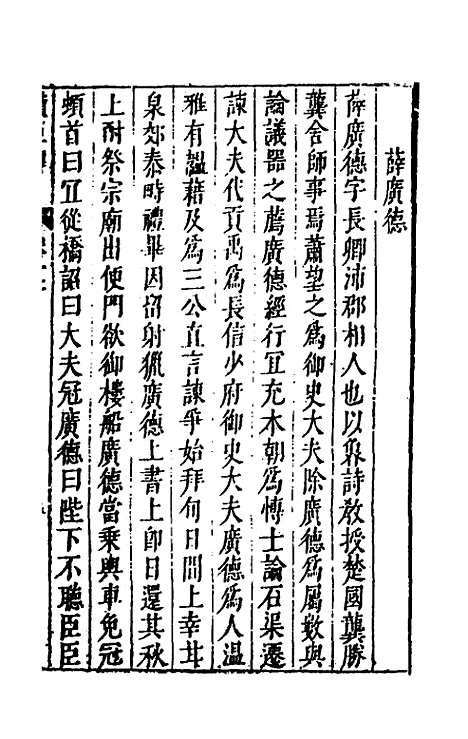 薛廣德
薛廣德字長卿沛郡相人也以魯詩教授楚國龔勝
龔舍師事焉蕭望之為御史大夫除廣德為屬數與
論議器之薦廣德經行冝充本朝為博士論石渠遷
諫大夫代貢禹為長信少府御史大夫廣德為人温
雅有醞藉及為三公直言諫爭始拜旬日間上幸甘
泉郊泰畤禮畢因留射獵廣德上書上即日還其秋
上酎祭宗廟出便門欲御樓船廣德當乘輿車免冠
頓首曰冝從橋詔曰大夫冠廣德曰陛下不聽臣臣